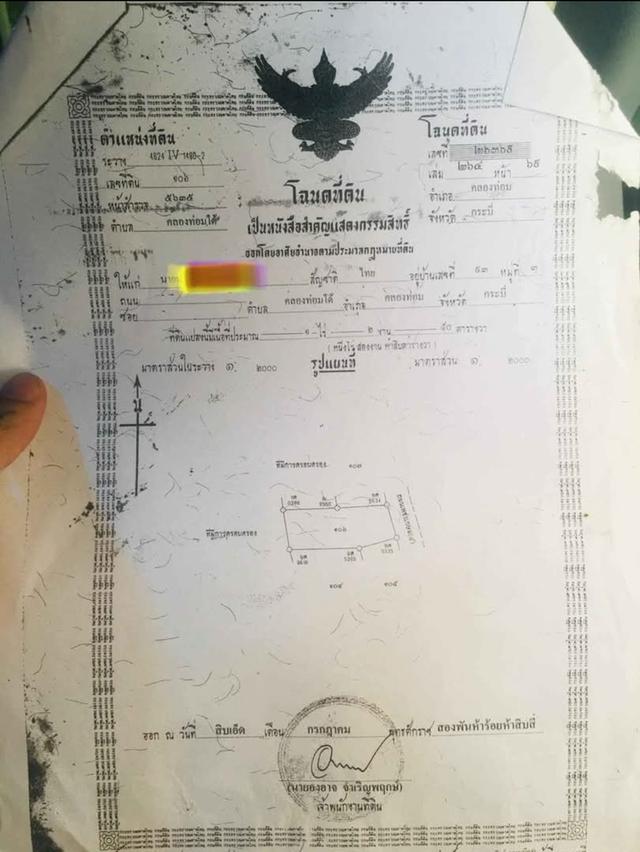 ตำแหน่งที่ดิน
ระวาง 4824 IV 1480-2
เลขที่ดิน ๑๐๖
หน้าสำรวจ ๕๖๓๕
ตำบล คลองท่อมใต้
โฉนดที่ดิน
เลขที่ ๒๖๓๖๕
เล่ม ๒๖๔ หน้า ๖๕
อำเภอ คลองท่อม
จังหวัด กระบี่
โฉนดที่ดิน
เป็นหนังสือสำคัญแสดงกรรมสิทธิ์
ออกโดยอาศัยอำนาจตามประมวลกฎหมายที่ดิน
ให้แก่ สัญชาติ ไทย อยู่บ้านเลขที่ ๑๓ หมู่ที่ ๓
ถนน
ซอย ตำบล คลองท่อมใต้ อำเภอ คลองท่อม จังหวัด กระบี่
ที่ดินแปลงนี้มีเนื้อที่ประมาณ ๑ ไร่ ๒ งาน ๕๐ ตารางวา
( หนึ่งไร่ สองงาน ห้าสิบตารางวา )
มาตราส่วนในระวาง ๑: ๒๐๐๐ รูปแผนที่ มาตราส่วน ๑: ๒๐๐๐
น
ที่มีการครอบครอง ๑๐๗
ที่มีการครอบครอง
๑๐๖
๑๐๔ ๑๐๕
ออก ณ วันที่ สิบเอ็ด เดือน กรกฎาคม พุทธศักราช สองพันห้าร้อยห้าสิบสี่
(นายองอาจ จำเริญพฤกษ์)
เจ้าพนักงานที่ดิน